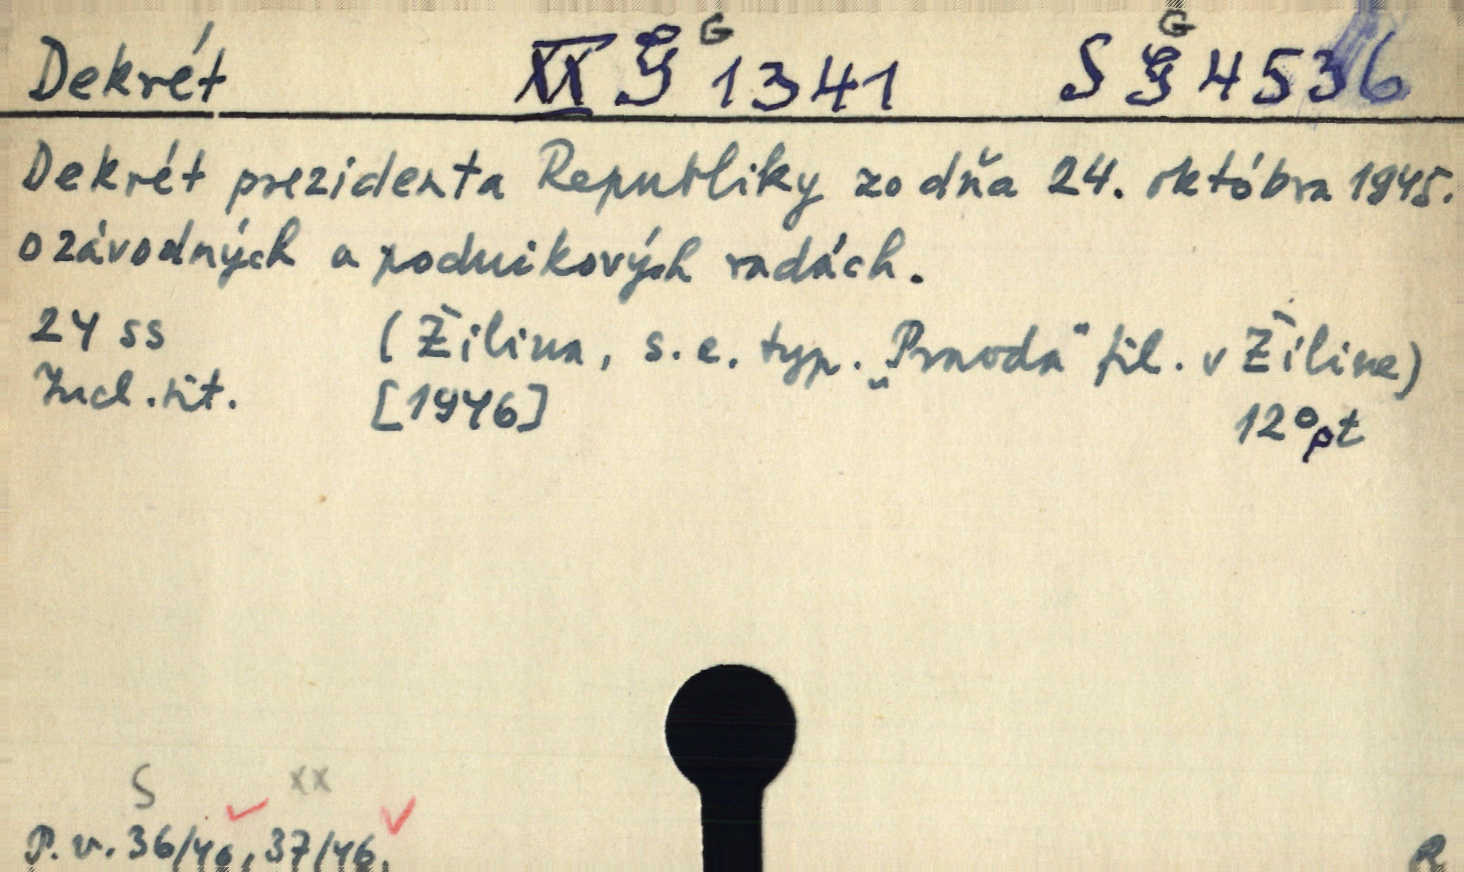 Dekrét XX G 1341 S G 4536
Dekrét prezidenta Republiky zo dňa 24. októbra 1945.
o závodných a podnikových radách.
24 ss (Žilina, s.e. typ. „Pravda" fil. v Žiline)
Incl. tit. [1946] 12° pt
S XX
P. v. 36/46, 37/46. R